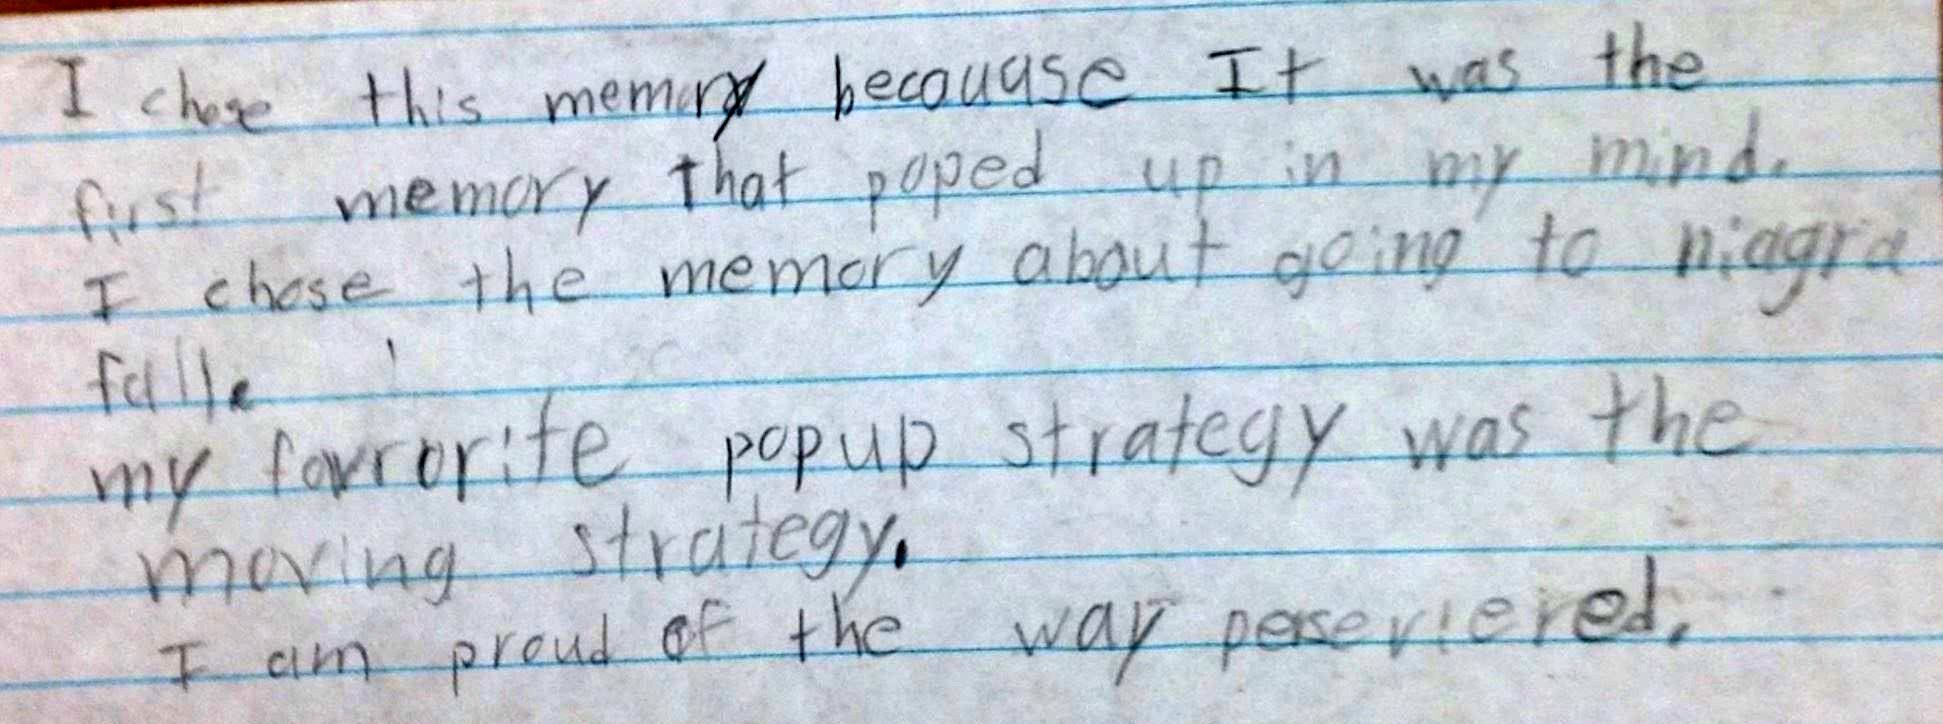 I chose this memory becouause It was the
first memory that poped up in my mind.
I chose the memory about going to niagra
falls
my favrorite popup strategy was the
moving strategy.
I am proud of the way perserviered.